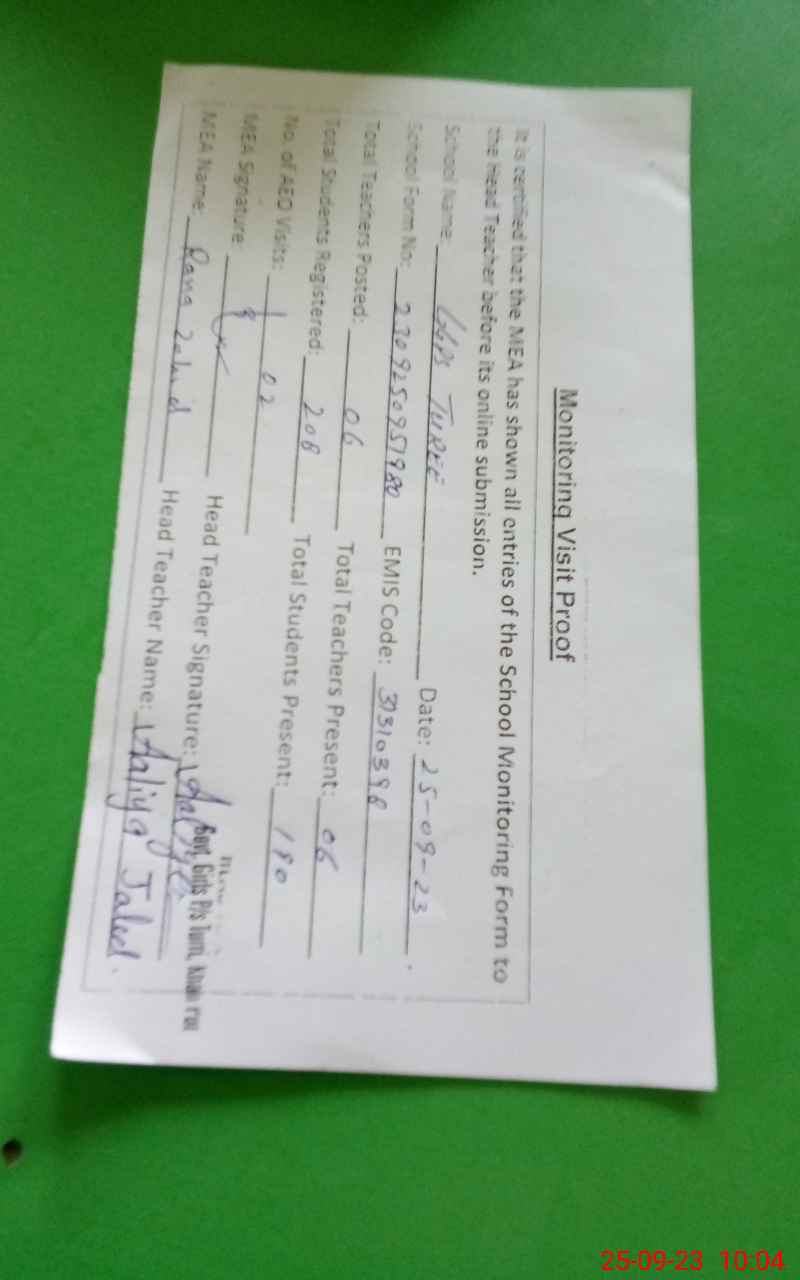 Monitoring Visit Proof
It is certified that the MEA has shown all entries of the School Monitoring Form to
the Head Teacher before its online submission.
School Name: GGPS TURRI Date: 25-09-23.
School Form No: 2309250951980 EMIS Code: 37310398
Total Teachers Posted: 06 Total Teachers Present: 06
Total Students Registered: 208 Total Students Present: 180
No. of AEO Visits: 02
MEA Signature Head Teacher Signature: Aaliya
Govt. Girls P/s Turri, Khan Pur
MEA Name: Rana Zahid Head Teacher Name: Aaliya Jaleel.
25-09-23 10:04